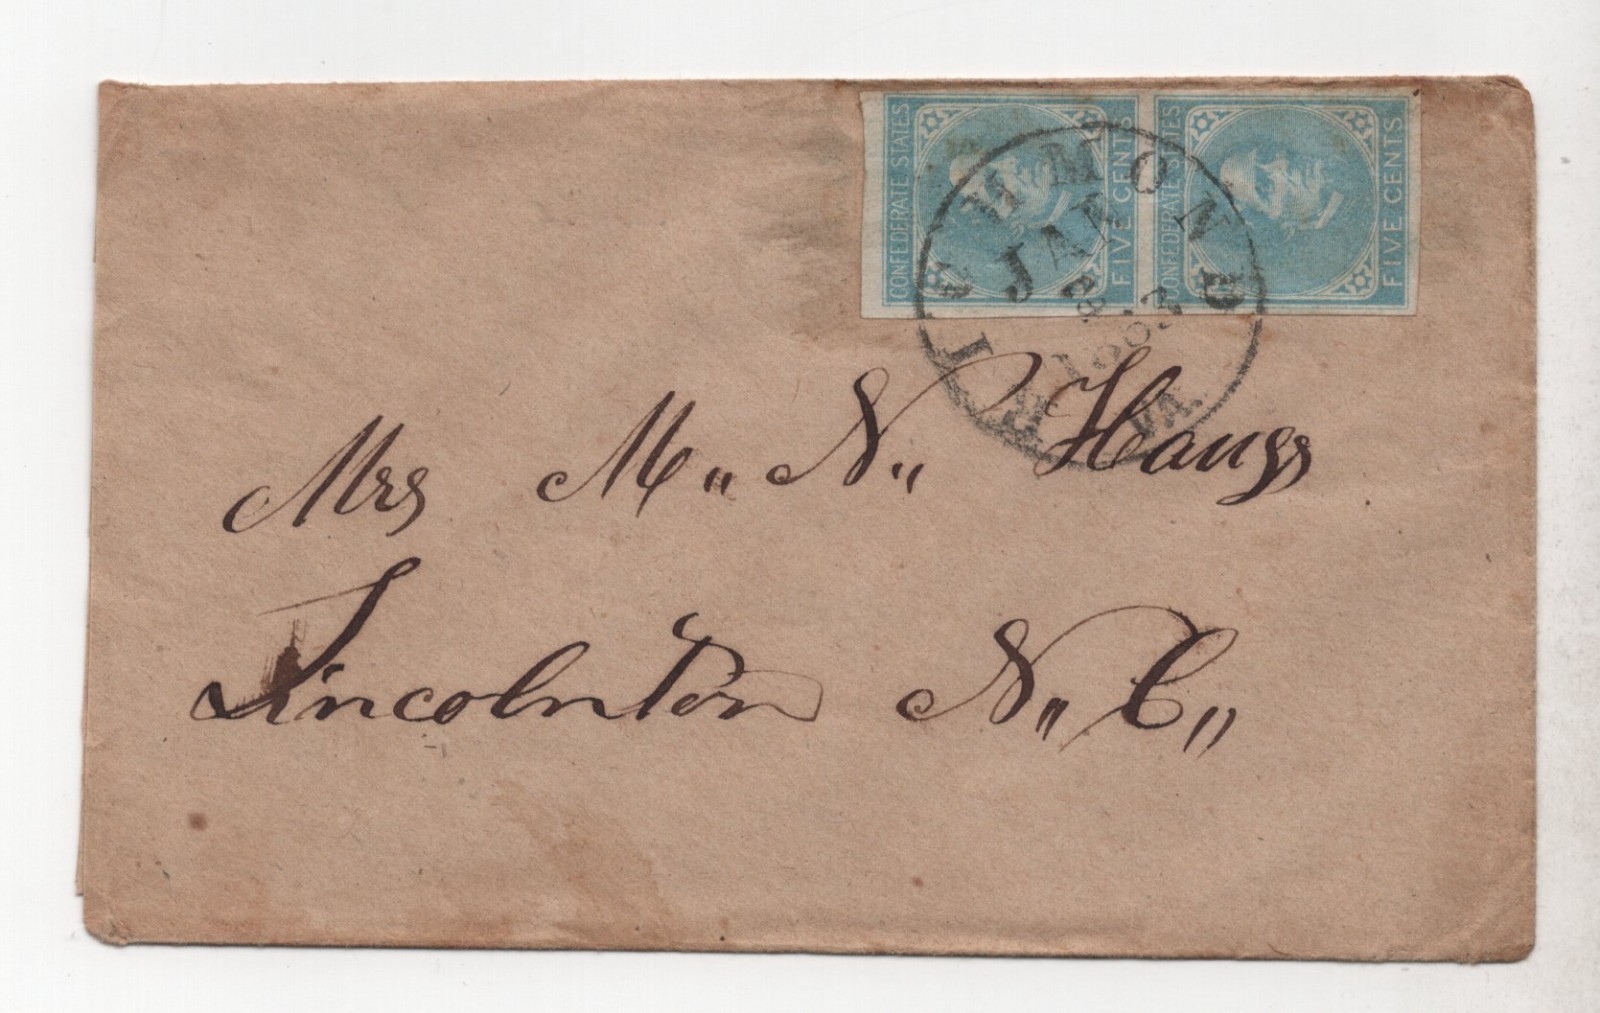 CONFEDERATE STATES
FIVE CENTS
CONFEDERATE STATES
FIVE CENTS
RICHMOND
JAN
8
1863
VA.
Mrs M,, N,, Hauss
Lincolnton N,, C,,